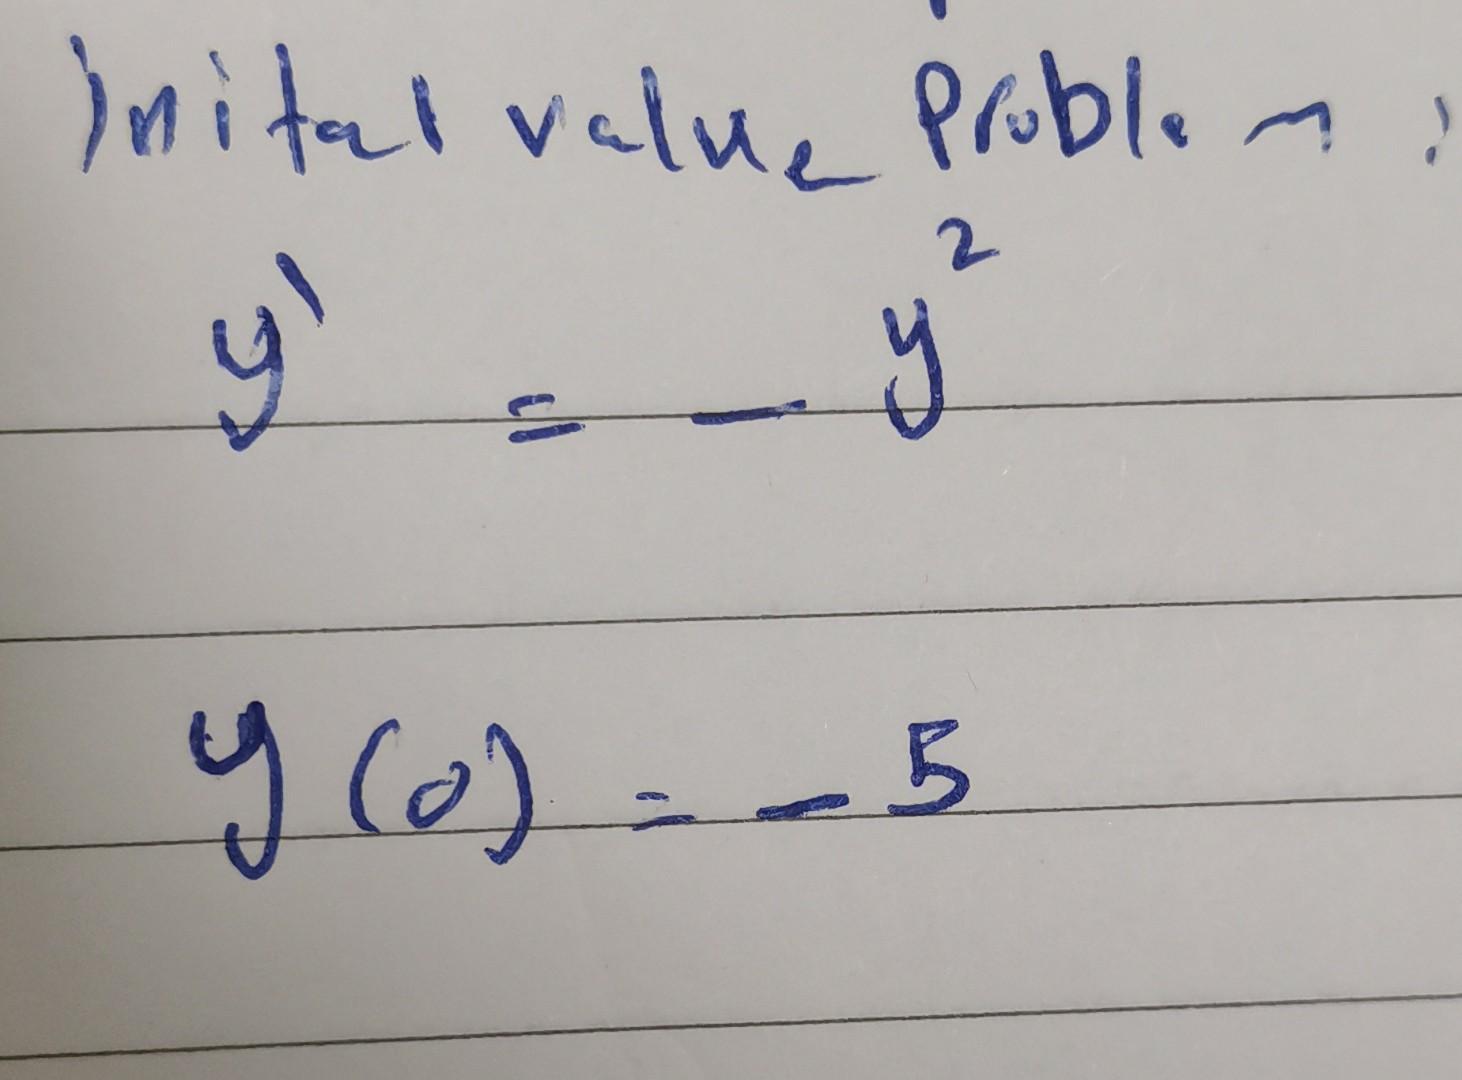 Inital value Problem :
y' = - y²
y(0) = - 5